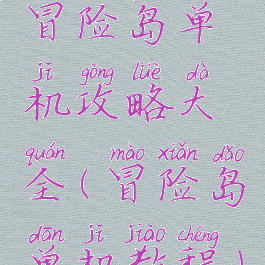 冒险岛单
jī gōng lüè dà
机攻略大
quán mào xiǎn dǎo
全(冒险岛
dān jī jiào chéng
单机教程)